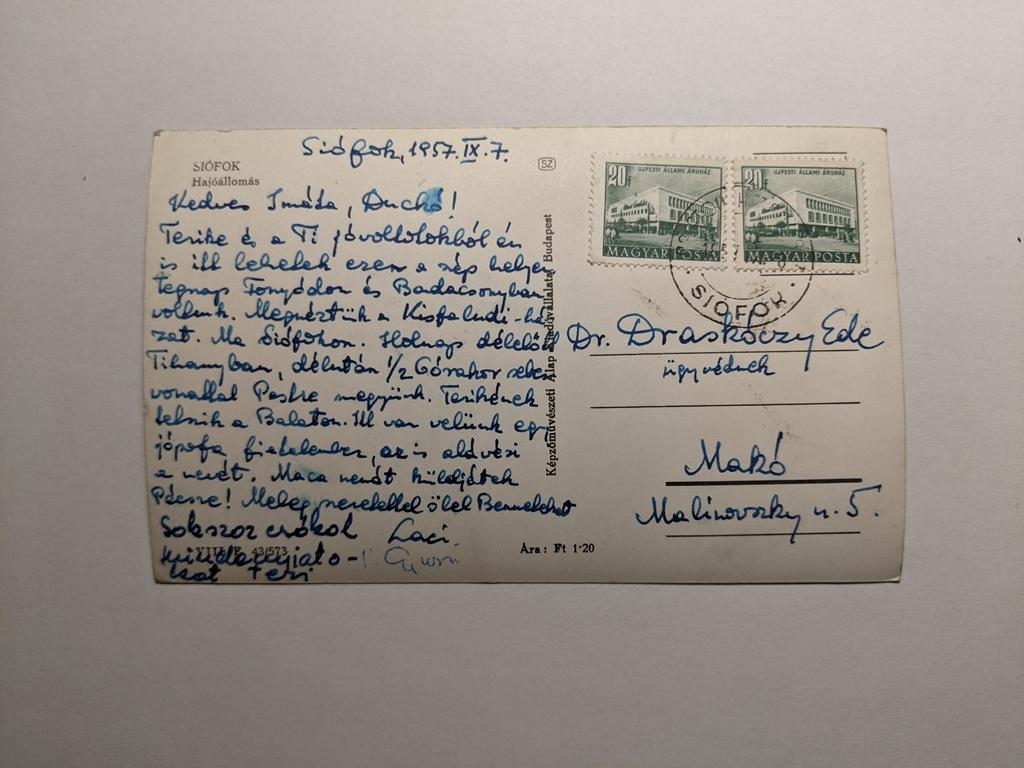 Siófok, 1957. IX. 7.
SIÓFOK
Hajóállomás
SZ
Kedves Imáda, Duckó!
Terike és a Ti jóvoltotokból én
is itt lehetek ezen a szép helyen
tegnap Fonyódon és Badacsonyban
voltunk. Megnéztük a Kisfaludi-há-
zat. Ma Siófokon. Holnap délelőtt
Tihanyban, délután 1/2 6órakor sebes
vonattal Pestre megyünk. Terikének
tetszik a Balaton. Itt van velünk egy
jópofa fiatalember, az is alávési
a nevét. Maca nenét küldjétek
Pécsre! Meleg szeretettel ölel Benneteket
Sokszor csókol Laci.
mindannyiato-
kat Teri
VIII/F 43/573
Képzőművészeti Alap Kiadóvállalata, Budapest
Ára: Ft 1·20
20f
UJPESTI ÁLLAMI ÁRUHÁZ
MAGYAR POSTA
20f
UJPESTI ÁLLAMI ÁRUHÁZ
MAGYAR POSTA
SIÓFOK
Dr. Draskóczy Ede
ügyvédnek
Makó
Malinovszky u. 5.